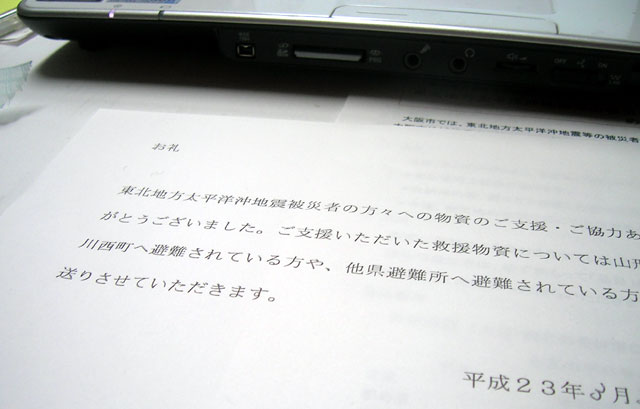 大阪市では、東北地方太平洋沖地震等の被災者
お礼
東北地方太平洋沖地震被災者の方々への物資のご支援・ご協力あ
がとうございました。ご支援いただいた救援物資については山形
川西町へ避難されている方や、他県避難所へ避難されている方
送りさせていただきます。
平成23年3月